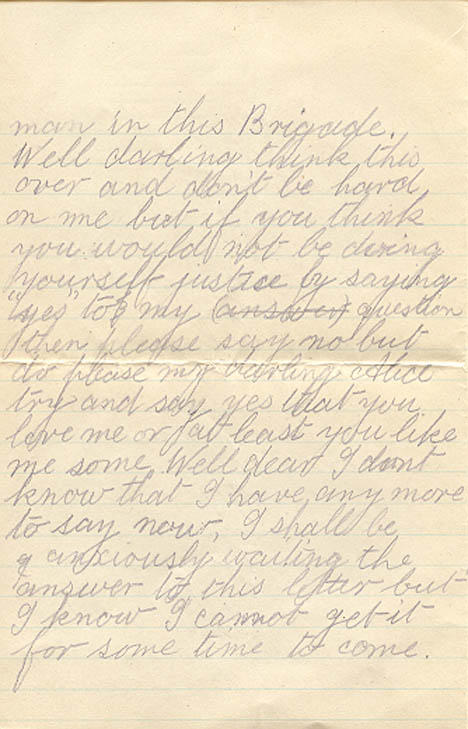 man in this Brigade.
Well darling think this
over and don't be hard
on me but if you think
you would not be doing
yourself justice by saying
"yes" to my (answer) question
then please say no but
do please my darling Alice
try and say yes that you
love me or at least you like
me some. Well dear I dont
know that I have any more
to say now, I shall be
anxiously waiting the
answer to this letter but
I know I cannot get it
for some time to come.